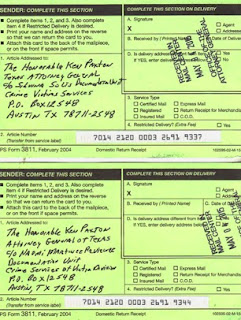 SENDER: COMPLETE THIS SECTION
■ Complete items 1, 2, and 3. Also complete
item 4 if Restricted Delivery is desired.
■ Print your name and address on the reverse
so that we can return the card to you.
■ Attach this card to the back of the mailpiece,
or on the front if space permits.
1. Article Addressed to:
The Honorable Ken Paxton
Texas Attorney General
Crime Victims Services
P.O. Box 12548
Austin TX 78711-2548
2. Article Number
(Transfer from service label)
7014 2120 0003 2691 9337
PS Form 3811, February 2004
Domestic Return Receipt
COMPLETE THIS SECTION ON DELIVERY
A. Signature
X
B. Received by (Printed Name)
D. Is delivery address
If YES, enter delivery
3. Service Type
Certified Mail
Express Mail
Registered
Return Receipt for Merchandise
Insured Mail
C.O.D.
4. Restricted Delivery? (Extra Fee)
Yes
SENDER: COMPLETE THIS SECTION
■ Complete items 1, 2, and 3. Also complete
item 4 if Restricted Delivery is desired.
■ Print your name and address on the reverse
so that we can return the card to you.
■ Attach this card to the back of the mailpiece,
or on the front if space permits.
1. Article Addressed to:
The Honorable Ken Paxton
Attorney General of Texas
Documentation Unit
P.O. Box 12548
Austin, TX 78711-2548
2. Article Number
(Transfer from service label)
7014 2120 0003 2691 9344
PS Form 3811, February 2004
Domestic Return Receipt
COMPLETE THIS SECTION ON DELIVERY
A. Signature
X
B. Received by (Printed Name)
D. Is delivery address different from
If YES, enter delivery address
3. Service Type
Certified Mail
Express Mail
Registered
Return Receipt for Merchandise
Insured Mail
C.O.D.
4. Restricted Delivery? (Extra Fee)